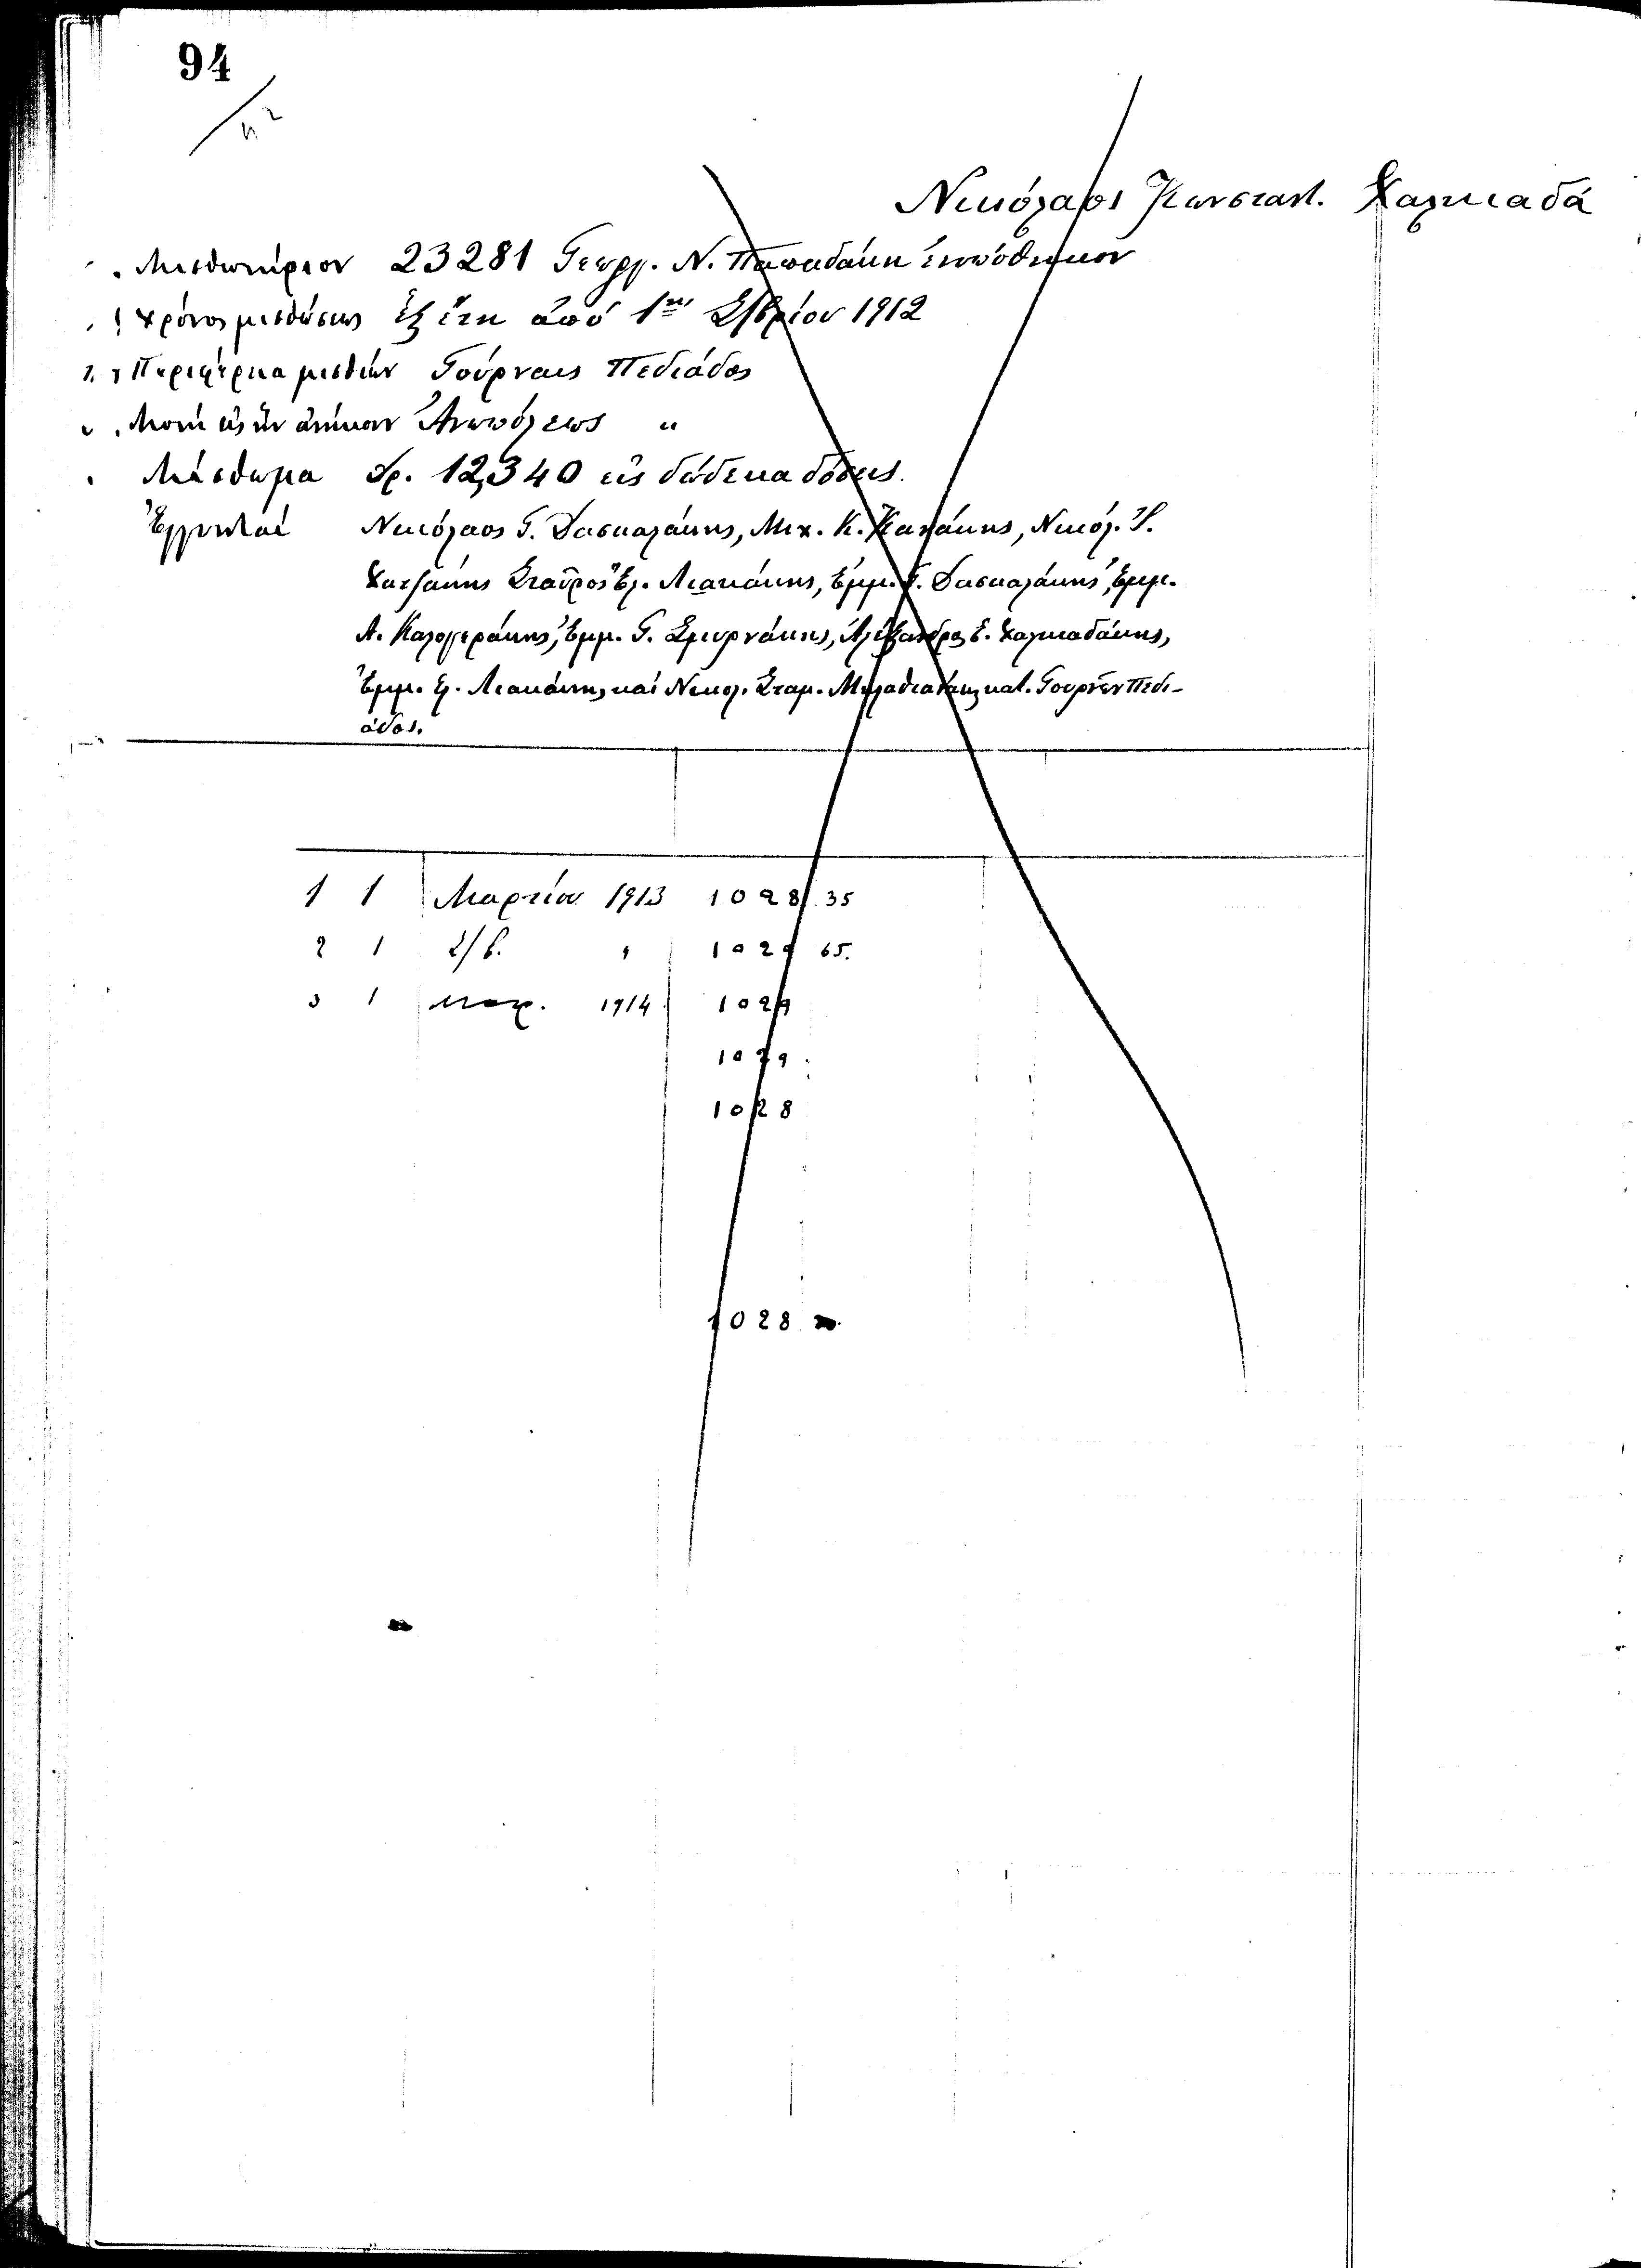 94
Νικόλαος Κωνσταντ. Χαλκιαδά
Μισθωτήριον 23281 Γεωργ. Ν. Παπαδάκη ἐνυπόθηκον
Χρόνος μισθώσεως ἕξ ἔτη ἀπό 1ης 7/βρίου 1912
Περιφέρεια μισθίων Γούρναις Πεδιάδος
Μονή εἰς ἥν ἀνήκουν Ἀνωπόλεως "
Μίσθωμα δρ. 12,340 εἰς δώδεκα δόσεις.
Ἐγγυηταί Νικόλαος Γ. Δασκαλάκης, Μιχ. Κ. Κανάκης, Νικόλ. Ι.
Χατζάκης Σταῦρος Ἐλ. Λιακάκης, Ἐμμ. Γ. Δασκαλάκης, Ἐμμ.
Α. Καλογεράκης, Ἐμμ. Γ. Σμυρνάκης, Ἀλέξανδρος Ε. Χαλκιαδάκης,
Ἐμμ. Ἐλ. Λιακάκης καί Νικολ. Σταμ. Μηλαθιανάκης κατ. Γουρνῶν Πεδι-
άδος.
1 1 Μαρτίου 1913 1028 35
2 1 7/β. " 1029 65.
3 1 Μαρ. 1914 1029
1029
1028
1028